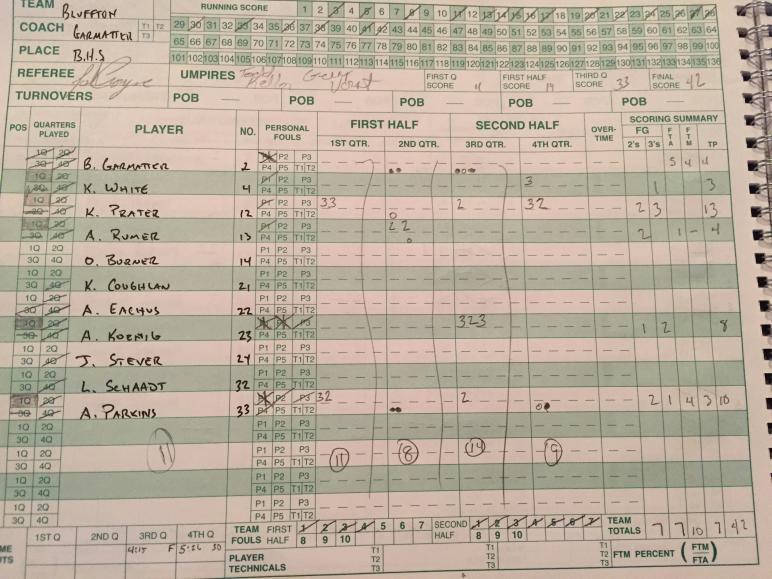 TEAM BLUFFTON RUNNING SCORE 1 2 3 4 5 6 7 8 9 10 11 12 13 14 15 16 17 18 19 20 21 22 23 24 25 26 27 28
COACH GARMATTER T1 T2 T3 29 30 31 32 33 34 35 36 37 38 39 40 41 42 43 44 45 46 47 48 49 50 51 52 53 54 55 56 57 58 59 60 61 62 63 64
65 66 67 68 69 70 71 72 73 74 75 76 77 78 79 80 81 82 83 84 85 86 87 88 89 90 91 92 93 94 95 96 97 98 99 100
PLACE B.H.S 101 102 103 104 105 106 107 108 109 110 111 112 113 114 115 116 117 118 119 120 121 122 123 124 125 126 127 128 129 130 131 132 133 134 135 136
REFEREE UMPIRES Todd Greg FIRST Q SCORE 11 FIRST HALF SCORE 19 THIRD Q SCORE 33 FINAL SCORE 42
TURNOVERS POB — POB — POB — POB — POB —
POS QUARTERS PLAYED PLAYER NO. PERSONAL FOULS FIRST HALF 1ST QTR. 2ND QTR. SECOND HALF 3RD QTR. 4TH QTR. OVER-TIME SCORING SUMMARY FG 2's 3's FTA FTM TP
1Q 2Q 3Q 4Q B. GARMATTER 2 P1 P2 P3 P4 P5 T1 T2 5 4 4
1Q 2Q 3Q 4Q K. WHITE 4 P1 P2 P3 P4 P5 T1 T2 3 1 3
1Q 2Q 3Q 4Q K. PRATER 12 P1 P2 P3 P4 P5 T1 T2 33 2 32 2 3 13
1Q 2Q 3Q 4Q A. RUMER 13 P1 P2 P3 P4 P5 T1 T2 2 2 2 1 - 4
1Q 2Q 3Q 4Q O. BURNER 14 P1 P2 P3 P4 P5 T1 T2
1Q 2Q 3Q 4Q K. COUGHLAN 21 P1 P2 P3 P4 P5 T1 T2
1Q 2Q 3Q 4Q A. EACHUS 22 P1 P2 P3 P4 P5 T1 T2
1Q 2Q 3Q 4Q A. KOENIG 23 P1 P2 P3 P4 P5 T1 T2 323 1 2 8
1Q 2Q 3Q 4Q J. STEVER 24 P1 P2 P3 P4 P5 T1 T2
1Q 2Q 3Q 4Q L. SCHAADT 32 P1 P2 P3 P4 P5 T1 T2
1Q 2Q 3Q 4Q A. PARKINS 33 P1 P2 P3 P4 P5 T1 T2 32 2 2 1 4 3 10
1Q 2Q 3Q 4Q P1 P2 P3 P4 P5 T1 T2
1Q 2Q 3Q 4Q 11 P1 P2 P3 P4 P5 T1 T2 11 8 14 9
1Q 2Q 3Q 4Q P1 P2 P3 P4 P5 T1 T2
1Q 2Q 3Q 4Q P1 P2 P3 P4 P5 T1 T2
1ST Q 2ND Q 3RD Q 4TH Q TEAM FOULS FIRST HALF 1 2 3 4 5 6 7 8 9 10 SECOND HALF 1 2 3 4 5 6 7 8 9 10 TEAM TOTALS 7 7 10 7 42
4:15 F 5-26 30 PLAYER TECHNICALS T1 T2 T3 T1 T2 T3 T1 T2 T3 FTM PERCENT (FTM/FTA)